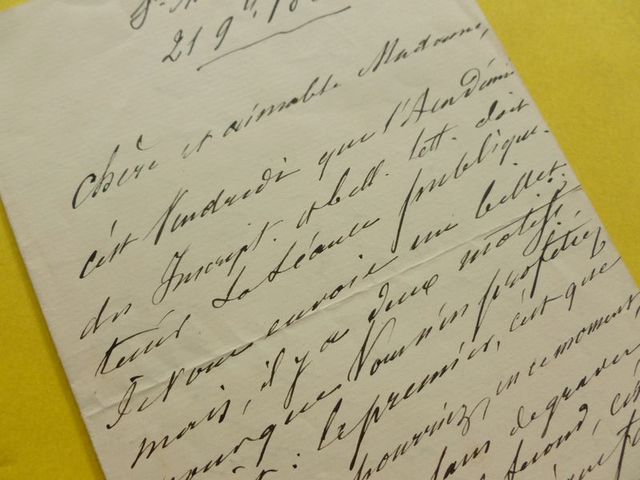 21 9
Chère et aimable Madame,
c'est Vendredi que l'Académie
des Inscript. et bell. lett. doit
tenir sa séance publique.
Je vous envoie un billet.
mais, il y a deux motifs
pour que vous n'en profitiez
: le premier, c'est que
pourriez, en ce moment,
sans